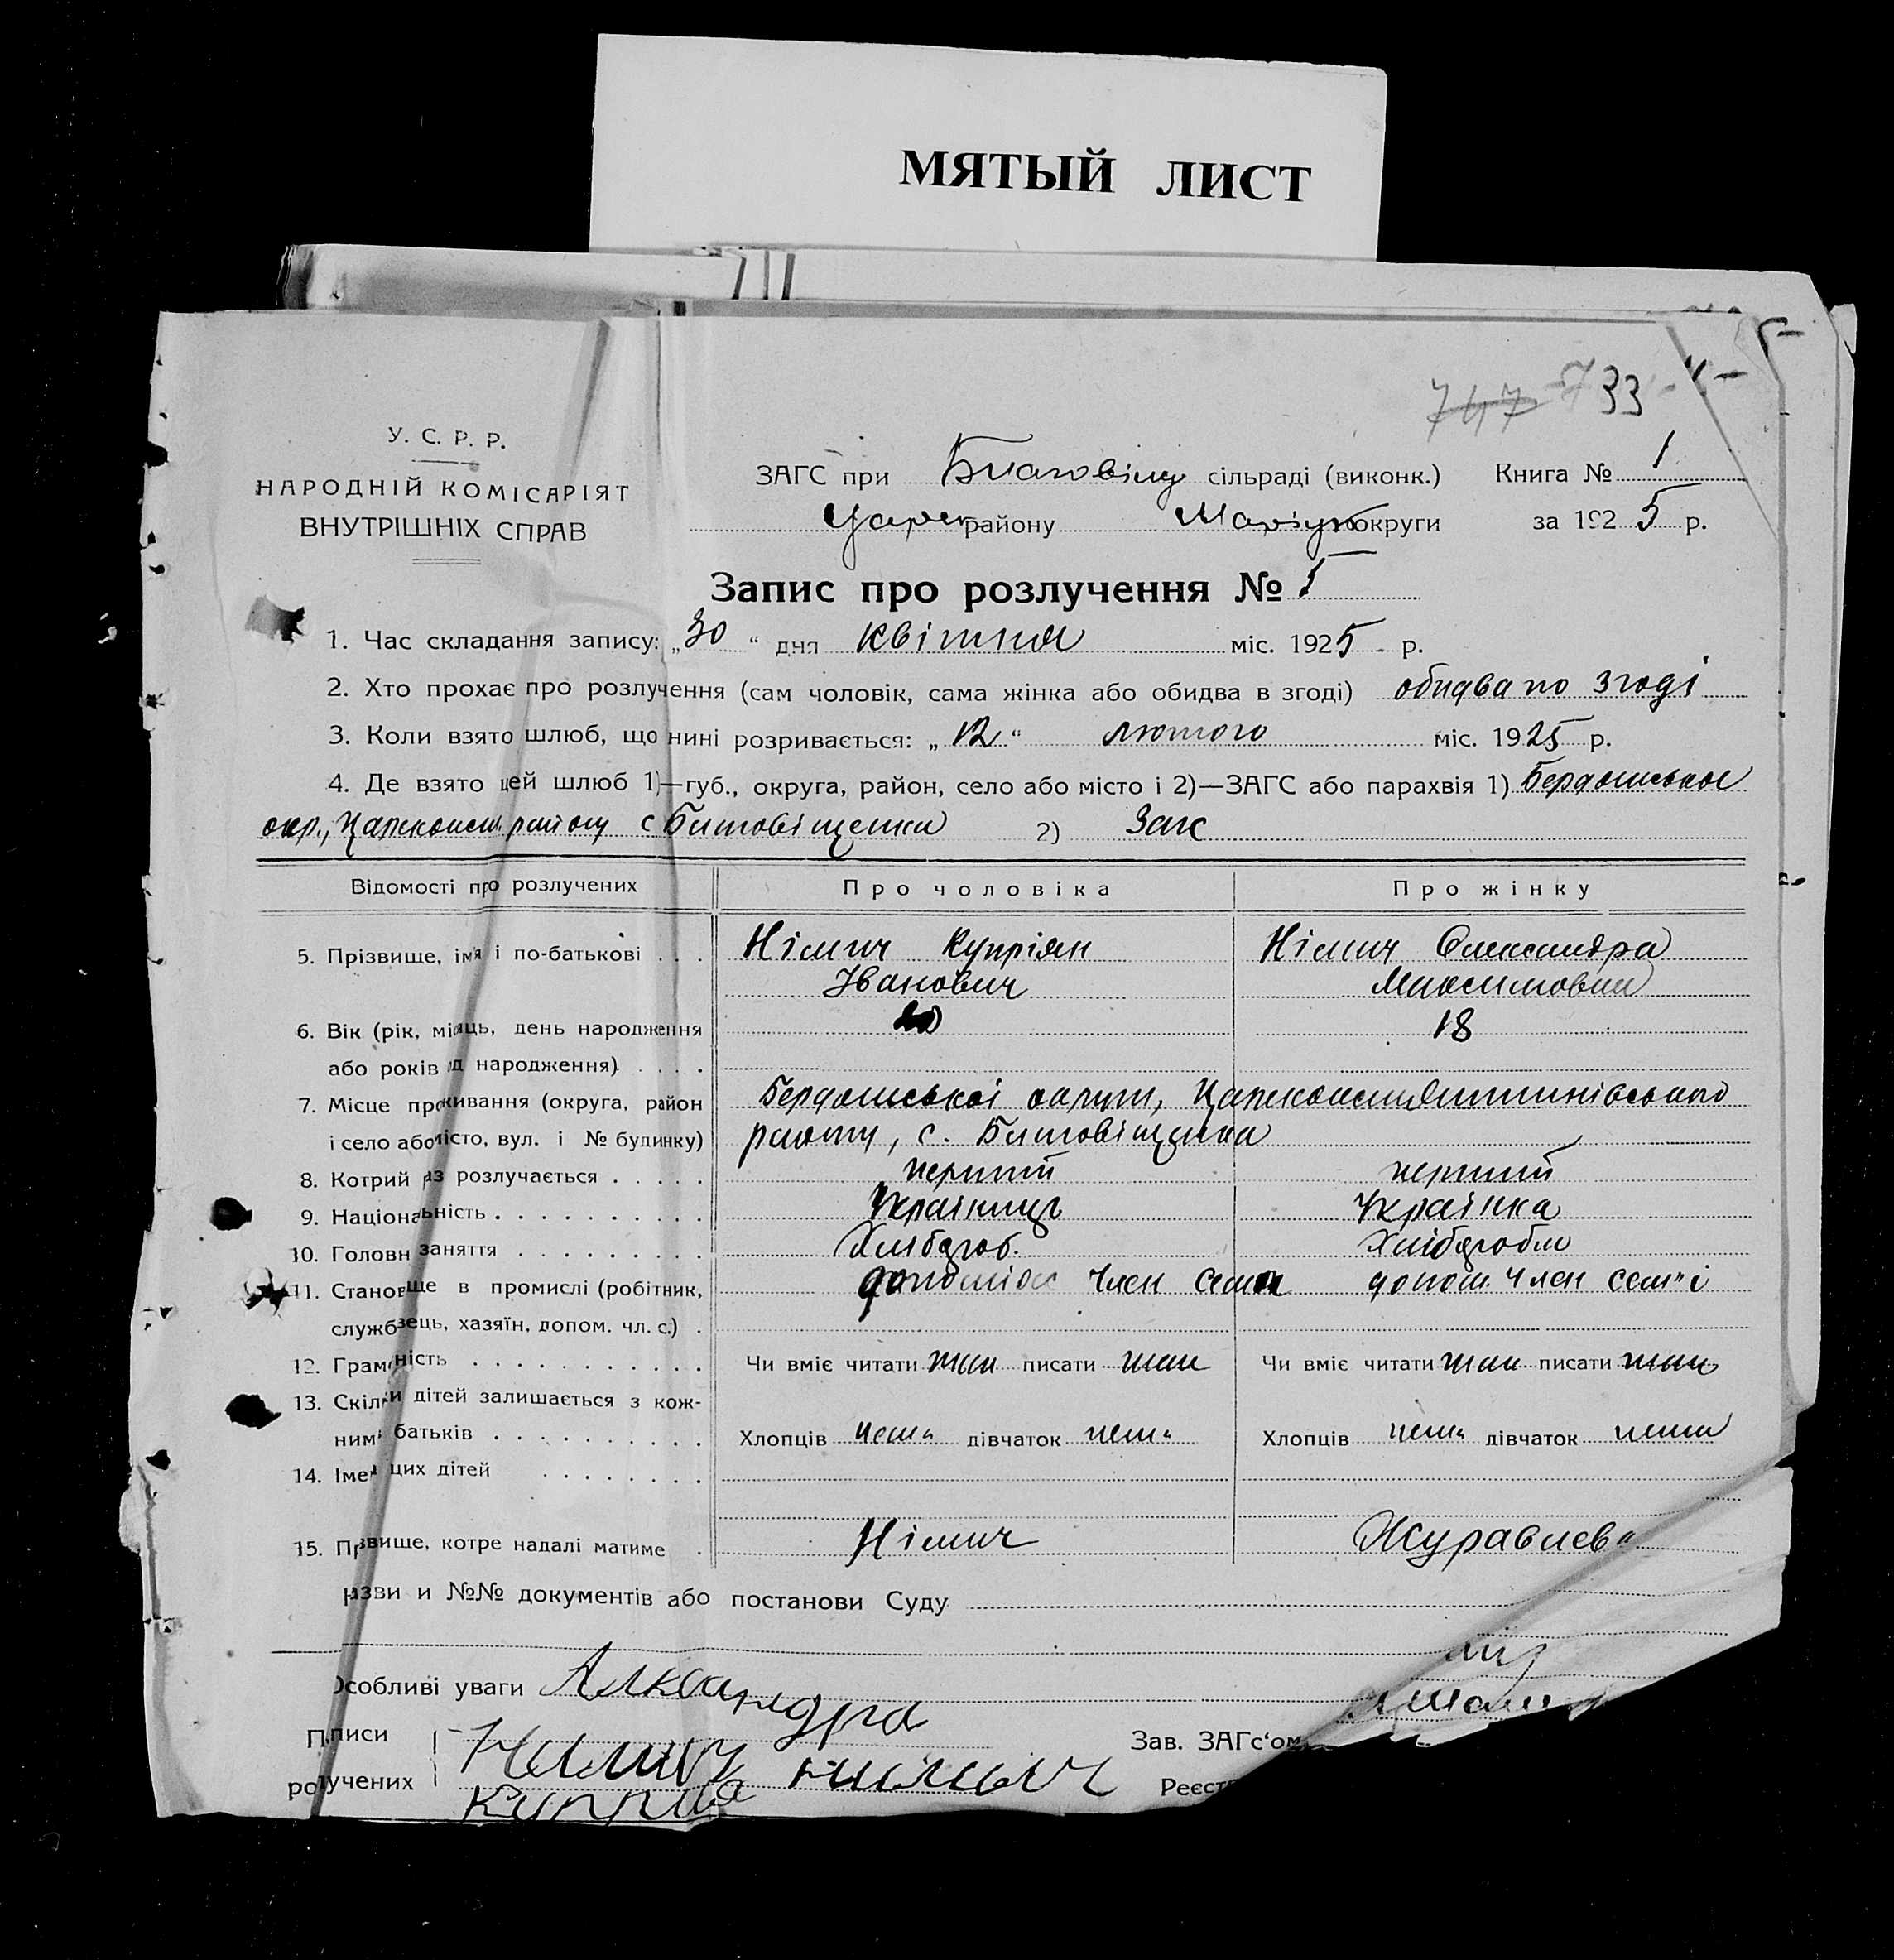 МЯТЫЙ ЛИСТ
747 733
У. С. Р. Р.
НАРОДНІЙ КОМІСАРІЯТ
ВНУТРІШНІХ СПРАВ
ЗАГС при Благовіщ сільраді (виконк.) Книга № 1
Царек. району Маріуп округи за 1925 р.
Запис про розлучення № 5
1. Час складання запису: „30“ дня квітня міс. 1925 р.
2. Хто прохає про розлучення (сам чоловік, сама жінка або обидва в згоді) обидва по згоді
3. Коли взято шлюб, що нині розривається: „12“ лютого міс. 1925 р.
4. Де взято цей шлюб 1)—губ., округа, район, село або місто і 2)—ЗАГС або парахвія 1) Бердянської
окр., Цареконст. району с Благовіщенка 2) Загс
Відомості про розлучених Про чоловіка Про жінку
5. Прізвище, імя і по-батькові . . . Німич Купріян Німич Олександра
Іванович Максимовна
6. Вік (рік, місяць, день народження 20 18
або років від народження) . . . .
7. Місце проживання (округа, район Бердянської округи, Цареконстянтинівського
і село або місто, вул. і № будинку) району, с. Благовіщенка
8. Котрий раз розлучається . . . . . перший перший
9. Національність . . . . . . . . . . Українець Українка
10. Головн заняття . . . . . . . . . Хлібороб. Хлібороб
11. Становище в промислі (робітник, допоміж член семї допом. член сем"ї
службовець, хазяїн, допом. чл. с.) .
12. Грамотність . . . . . . . . . . . Чи вміє читати так писати так Чи вміє читати так писати так
13. Скільки дітей залишається з кож-
ним батьків . . . . . . . . . . Хлопців нема дівчаток нема Хлопців нема дівчаток нема
14. Імена цих дітей . . . . . . . .
15. Прізвище, котре надалі матиме . Німич Журавлева
назви и №№ документів або постанови Суду
Особливі уваги Алксандра
Підписи Нимич Зав. ЗАГс'ом
розлучених Куприя нимич Реєст